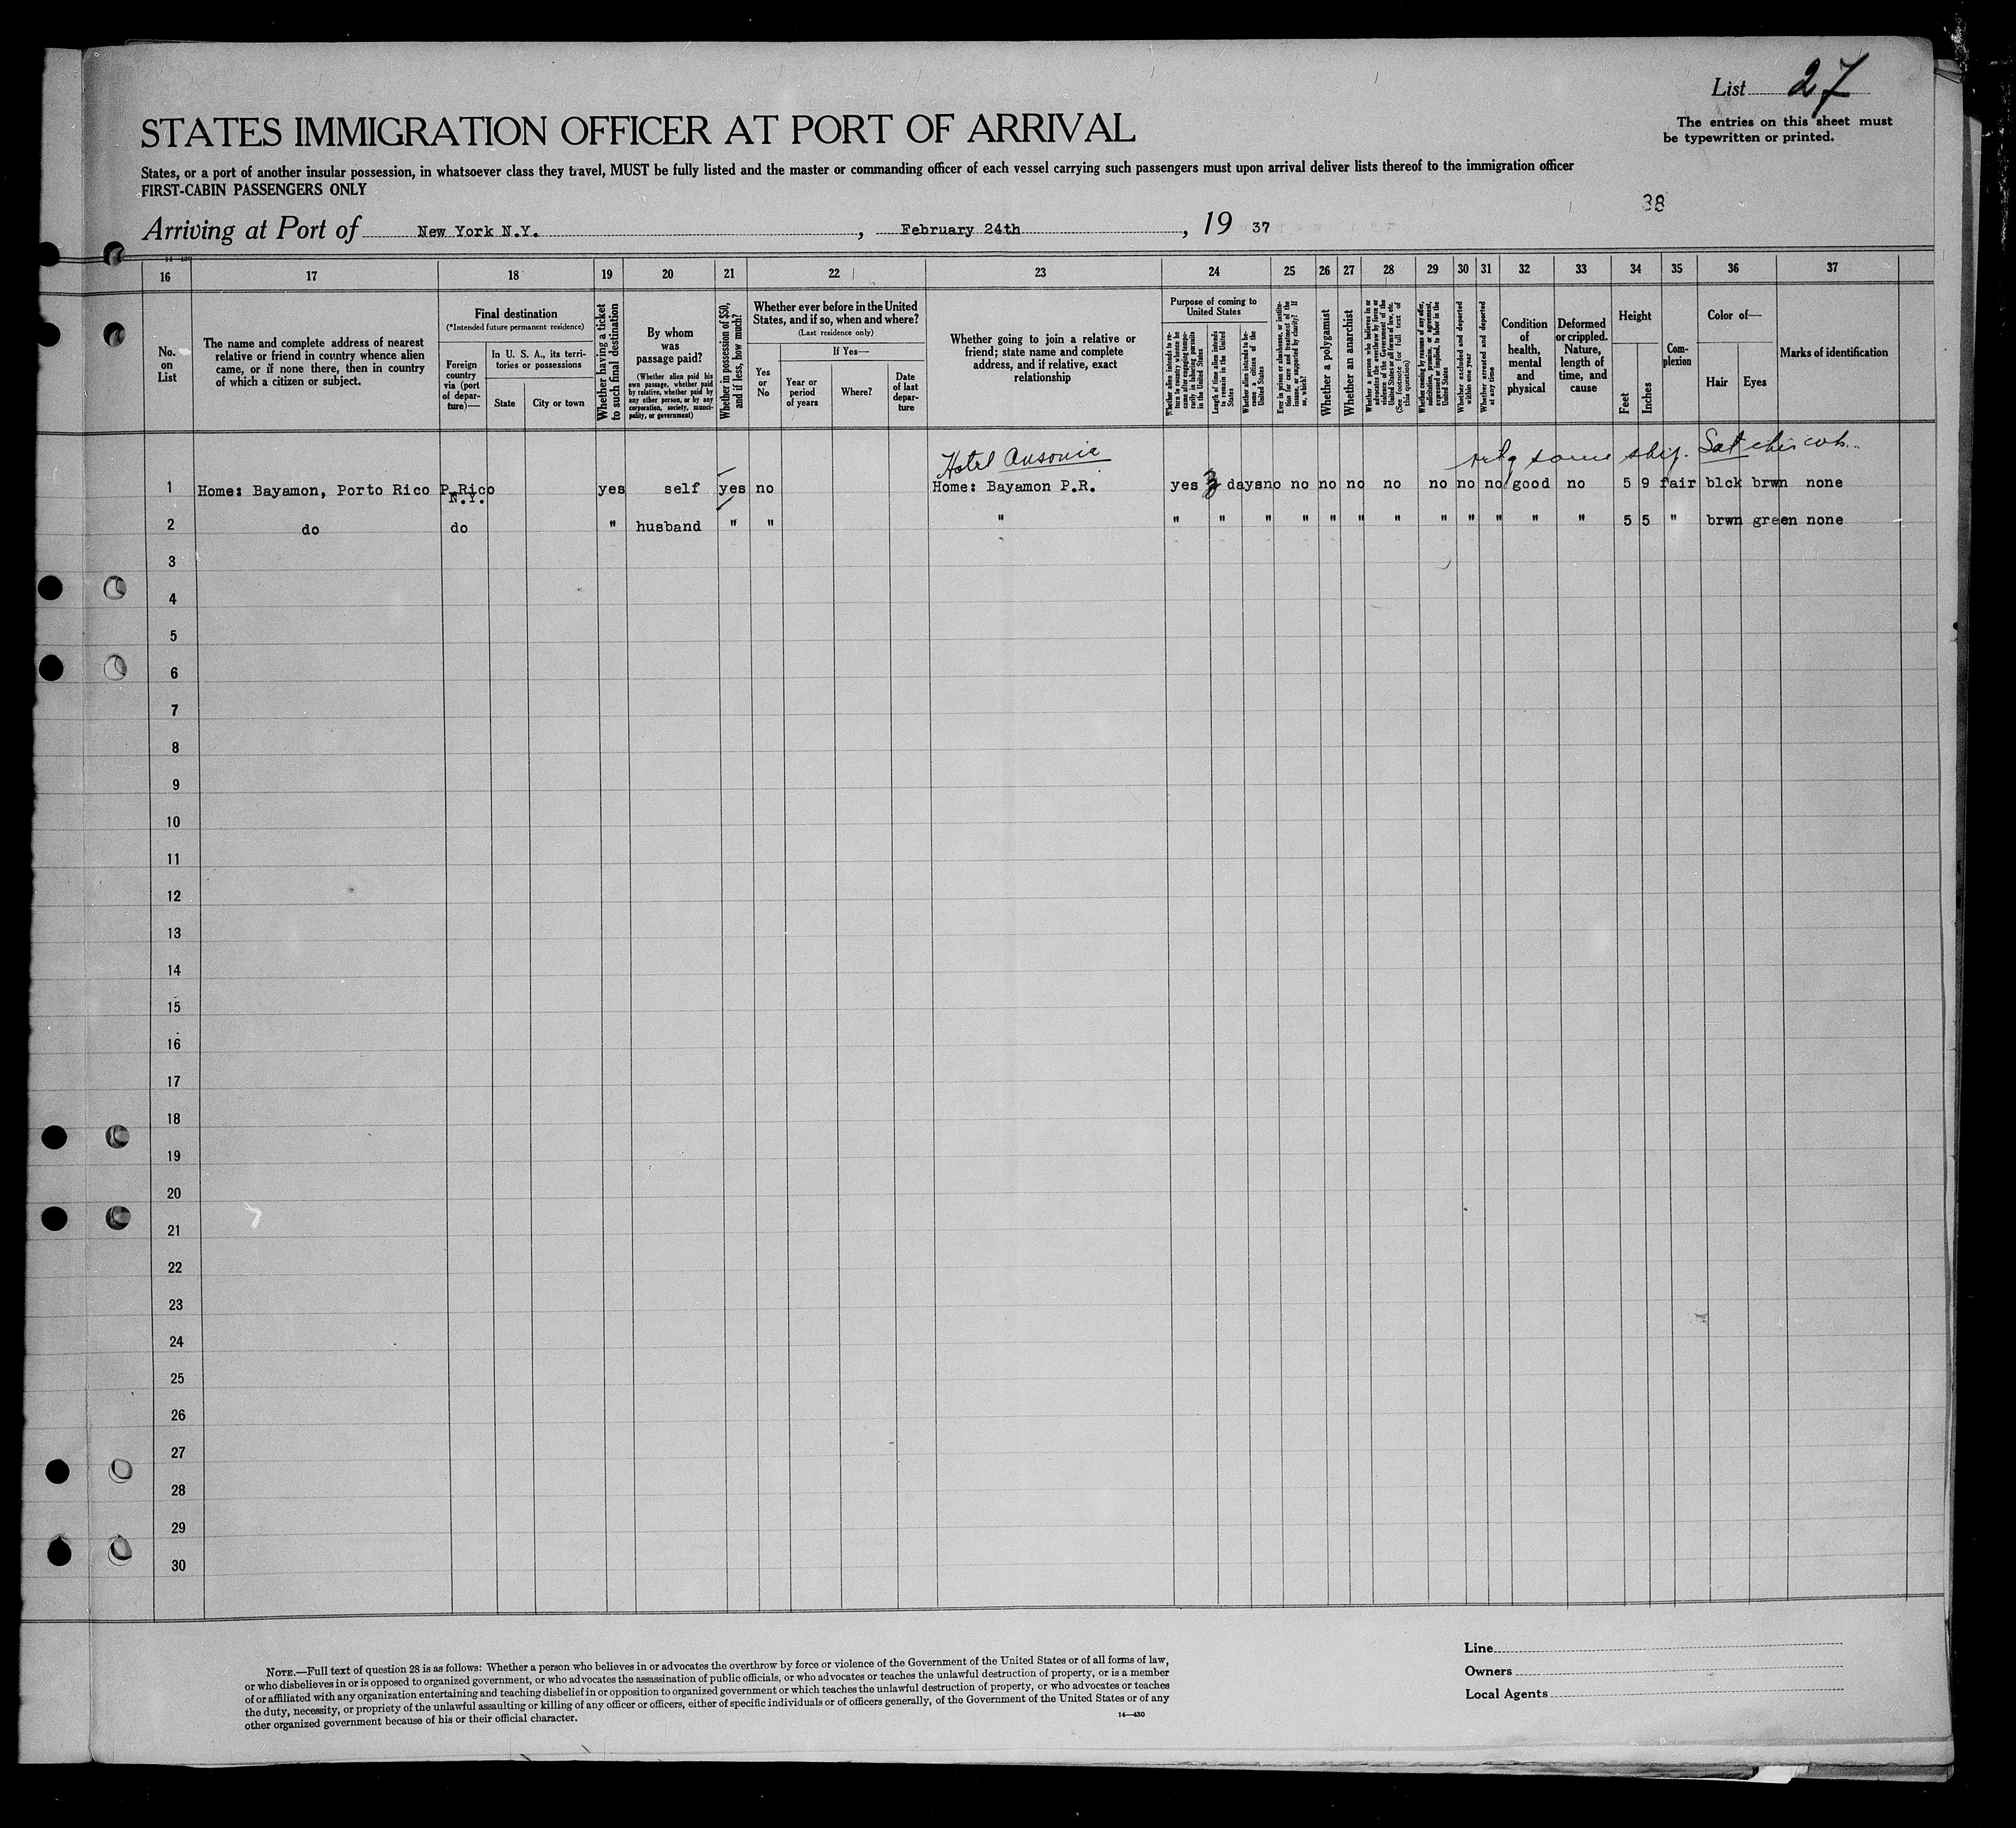 List 27
STATES IMMIGRATION OFFICER AT PORT OF ARRIVAL
The entries on this sheet must
be typewritten or printed.
States, or a port of another insular possession, in whatsoever class they travel, MUST be fully listed and the master or commanding officer of each vessel carrying such passengers must upon arrival deliver lists thereof to the immigration officer
FIRST-CABIN PASSENGERS ONLY
38
Arriving at Port of New York N.Y. , February 24th , 19 37
16 17 18 19 20 21 22 23 24 25 26 27 28 29 30 31 32 33 34 35 36 37
No.
on
List
The name and complete address of nearest
relative or friend in country whence alien
came, or if none there, then in country
of which a citizen or subject.
Final destination
(*Intended future permanent residence)
Foreign
country
via (port
of depar-
ture)—
In U. S. A., its terri-
tories or possessions
State
City or town
Whether having a ticket
to such final destination
By whom
was
passage paid?
(Whether alien paid his
own passage, whether paid
by relative, whether paid by
any other person, or by any
corporation, society, munici-
pality, or government)
Whether in possession of $50,
and if less, how much?
Whether ever before in the United
States, and if so, when and where?
(Last residence only)
Yes
or
No
If Yes—
Year or
period
of years
Where?
Date
of last
depar-
ture
Whether going to join a relative or
friend; state name and complete
address, and if relative, exact
relationship
Purpose of coming to
United States
Whether alien intends to re-
turn to country whence he
came after engaging tempo-
rarily in laboring pursuits
in the United States
Length of time alien intends
to remain in the United
States
Whether alien intends to be-
come a citizen of the
United States
Ever in prison or almshouse, or institu-
tion for care and treatment of the
insane, or supported by charity? If
so, which?
Whether a polygamist
Whether an anarchist
Whether a person who believes in or
advocates the overthrow by force or
violence of the Government of the
United States or all forms of law, etc.
(See footnote for full text of
this question)
Whether coming by reasons of any offer,
solicitation, promise, or agreement,
expressed or implied, to labor in the
United States
Whether excluded and deported
within one year
Whether arrested and deported
at any time
Condition
of
health,
mental
and
physical
Deformed
or crippled.
Nature,
length of
time, and
cause
Height
Feet
Inches
Com-
plexion
Color of—
Hair
Eyes
Marks of identification
Hotel Ausonia
same ship. Sat
1 Home: Bayamon, Porto Rico P.Rico N.Y. yes self yes no Home: Bayamon P.R. yes 3 days no no no no no no no no good no 5 9 fair blck brwn none
2 do do " husband " " " " " " " " " " " " " " " 5 5 " brwn green none
3
4
5
6
7
8
9
10
11
12
13
14
15
16
17
18
19
20
21
22
23
24
25
26
27
28
29
30
NOTE.—Full text of question 28 is as follows: Whether a person who believes in or advocates the overthrow by force or violence of the Government of the United States or of all forms of law,
or who disbelieves in or is opposed to organized government, or who advocates the assassination of public officials, or who advocates or teaches the unlawful destruction of property, or is a member
of or affiliated with any organization entertaining and teaching disbelief in or opposition to organized government or which teaches the unlawful destruction of property, or who advocates or teaches
the duty, necessity, or propriety of the unlawful assaulting or killing of any officer or officers, either of specific individuals or of officers generally, of the Government of the United States or of any
other organized government because of his or their official character.
14—430
Line
Owners
Local Agents